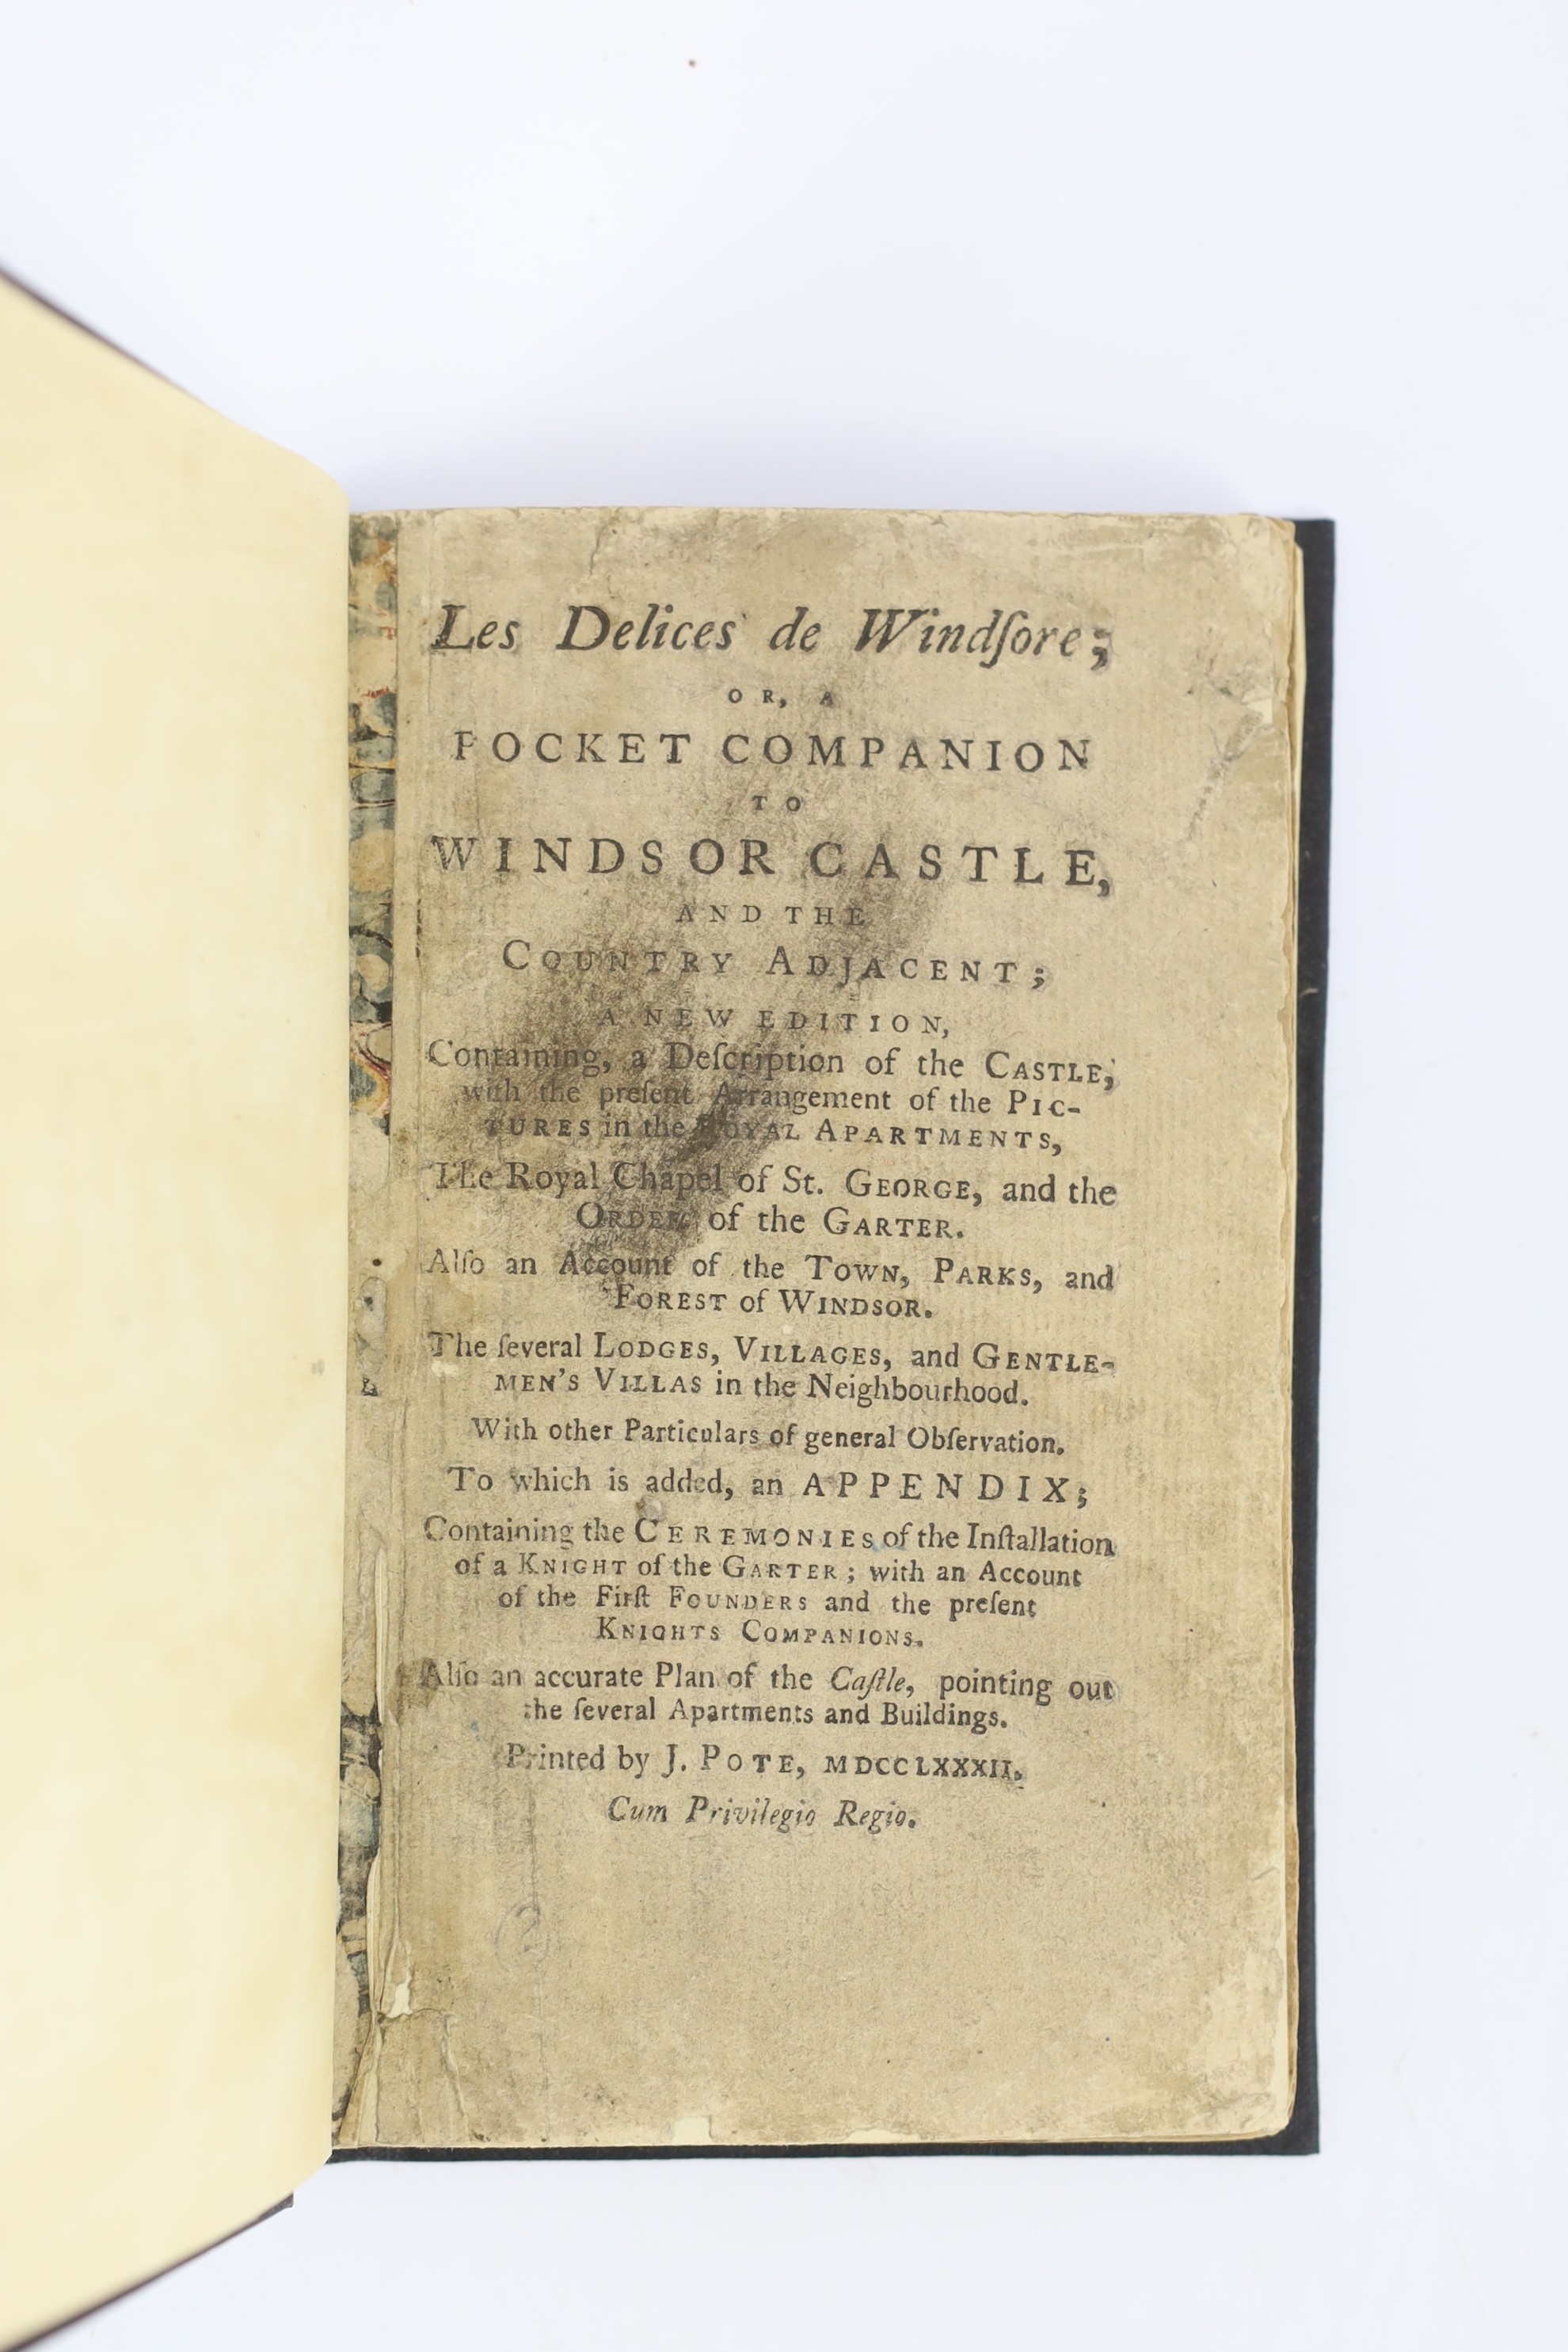 Les Delices de Windſore;
OR, A
POCKET COMPANION
TO
WINDSOR CASTLE,
AND THE
COUNTRY ADJACENT;
A NEW EDITION,
Containing, a Deſcription of the CASTLE,
with the preſent Arrangement of the PIC-
TURES in the ROYAL APARTMENTS,
The Royal Chapel of St. GEORGE, and the
ORDER of the GARTER.
Alſo an Account of the TOWN, PARKS, and
FOREST of WINDSOR.
The ſeveral LODGES, VILLAGES, and GENTLE-
MEN'S VILLAS in the Neighbourhood.
With other Particulars of general Obſervation.
To which is added, an APPENDIX;
Containing the CEREMONIES of the Inſtallation
of a KNIGHT of the GARTER; with an Account
of the Firſt FOUNDERS and the preſent
KNIGHTS COMPANIONS.
Alſo an accurate Plan of the Caſtle, pointing out
the ſeveral Apartments and Buildings.
Printed by J. POTE, MDCCLXXXII.
Cum Privilegio Regio.